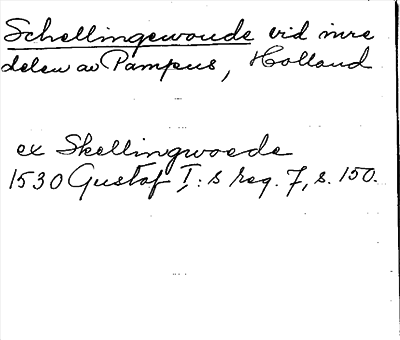 Schellingewoude vid inre
delen av Pampus, Holland
ex Skellingwoede
1530 Gustaf I:s reg. 7, s. 150.